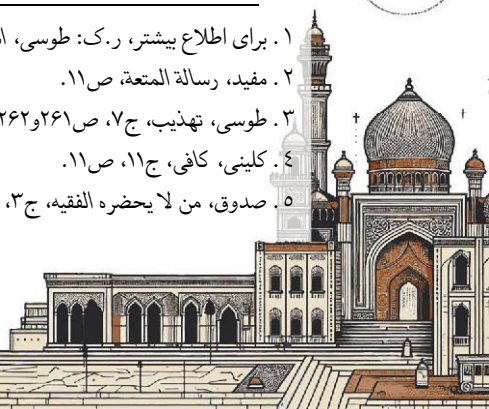 ۱. برای اطلاع بیشتر، ر.ک: طوسی،
۲. مفید، رسالة المتعة، ص۱۱.
۳. طوسی، تهذیب، ج۷، ص۲۶۱و۲۶۲
٤. کلینی، کافی، ج۱۱، ص۱۱.
۵. صدوق، من لا یحضره الفقیه، ج۳،